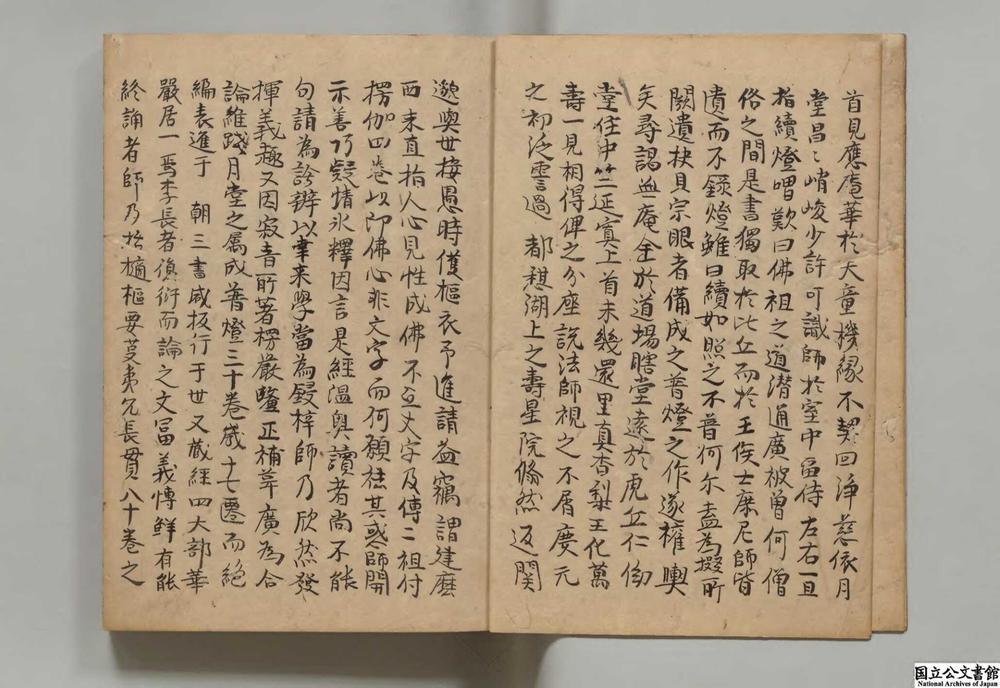 首見應庵華於天童機緣不契回淨慈依月
堂昌〻峭峻少許可識師於室中畄侍左右一旦
指續燈喟歎曰佛祖之道潜通廣被曽何僧
俗之間是書獨取於比丘而於王侯士庶尼師皆
遺而不錄燈雖曰續如照之不普何尔盍為掇所
闕遺抉具宗眼者備成之普燈之作遂權輿
矣尋謁 庵全於道場瞎堂遠於虎丘仁
堂住中竺延 上首未幾還里真杳梨王化萬
壽一見相得俾之分座說法師視之不屑慶元
之初泛雲過 都憩湖上之壽星院翛然返関
邈與世接愚時僅樞衣予進請益竊謂達麽
西来直指人心見性成佛不立文字及傳二祖付
楞伽四卷以即佛心非文字而何願祛其惑師開
示善巧疑情氷釋因言是經溫奥讀者尚不能
句請為詮辨以幸来學當為鋟梓師乃欣然發
揮義趣又因寂音所著楞嚴 正補葺廣為合
論維踐月堂之属成普燈三十卷歲十七遷而絕
編表進于 朝三書咸板行于世又蔵經四大部華
嚴居一焉李長者復衍而論之文冨義愽鮮有能
終誦者師乃於樞要芟夷冗長貫八十卷之
国立公文書館
National Archives of Japan